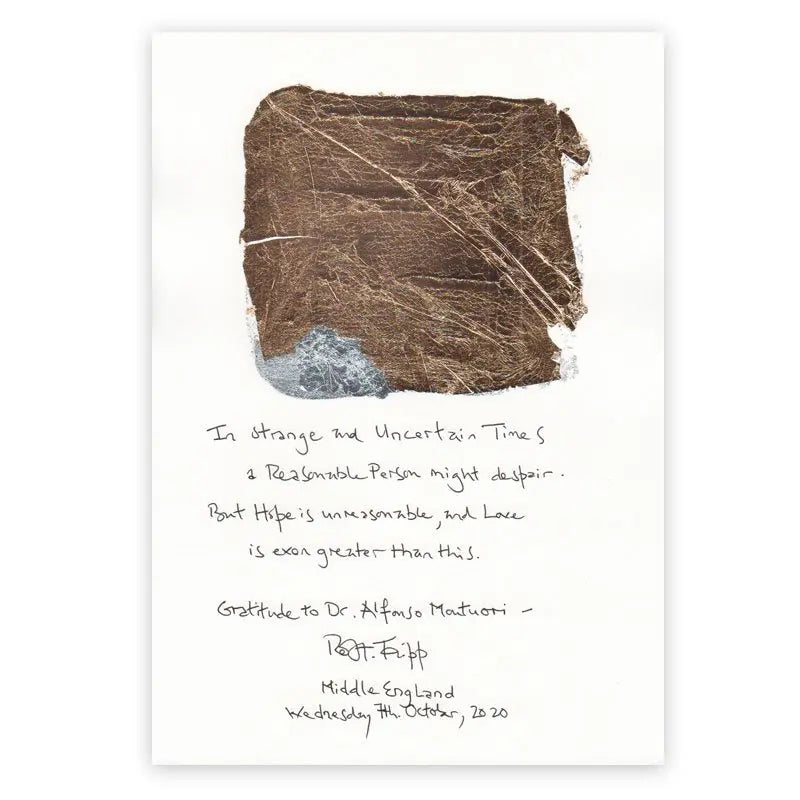 In Strange and Uncertain Times
a Reasonable Person might despair.
But Hope is unreasonable, and Love
is even greater than this.
Gratitude to Dr. Alfonso Montuori –
Robt. Fripp
Middle England
Wednesday 7th. October, 2020